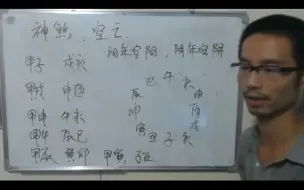 神煞：空亡
阳年空阳，阴年空阴
甲子 戌亥
甲戌 申酉
甲申 午未
甲午 辰巳
甲辰 寅卯 甲寅，子丑
巳 午 未
辰 申
卯 酉
寅 戌
丑 子 亥